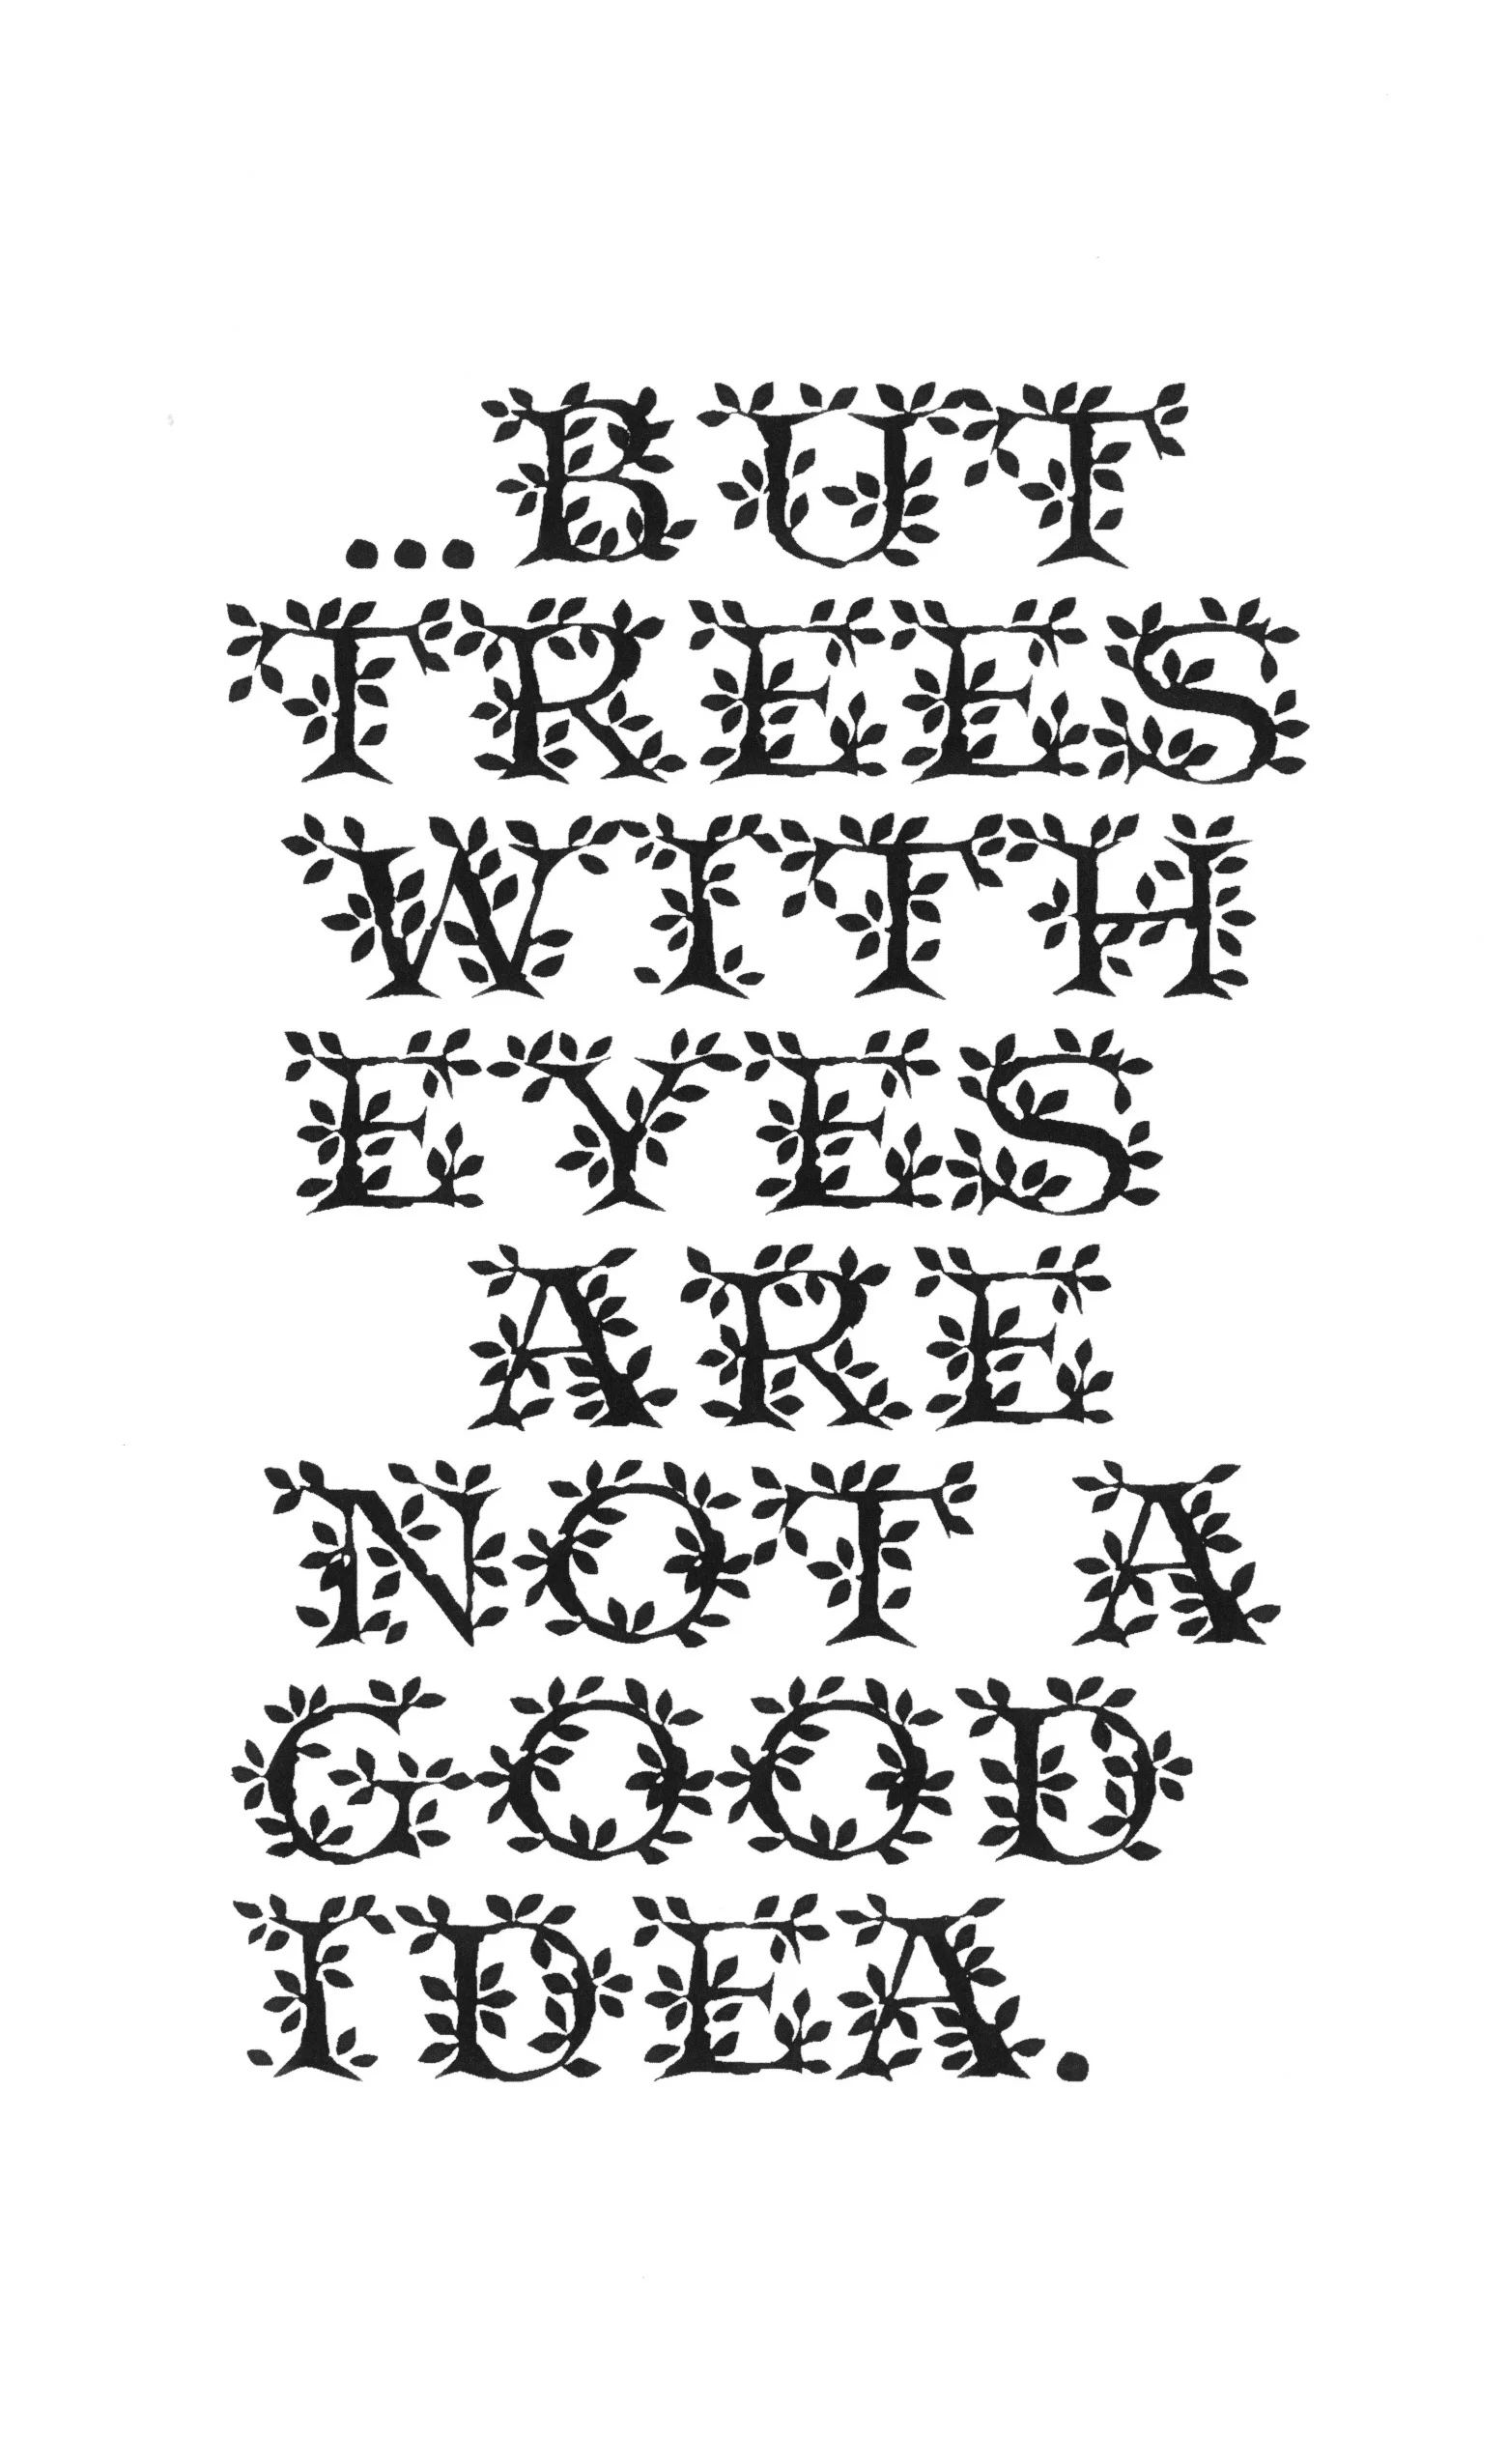 ...BUT
TREES
WITH
EYES
ARE
NOT A
GOOD
IDEA.